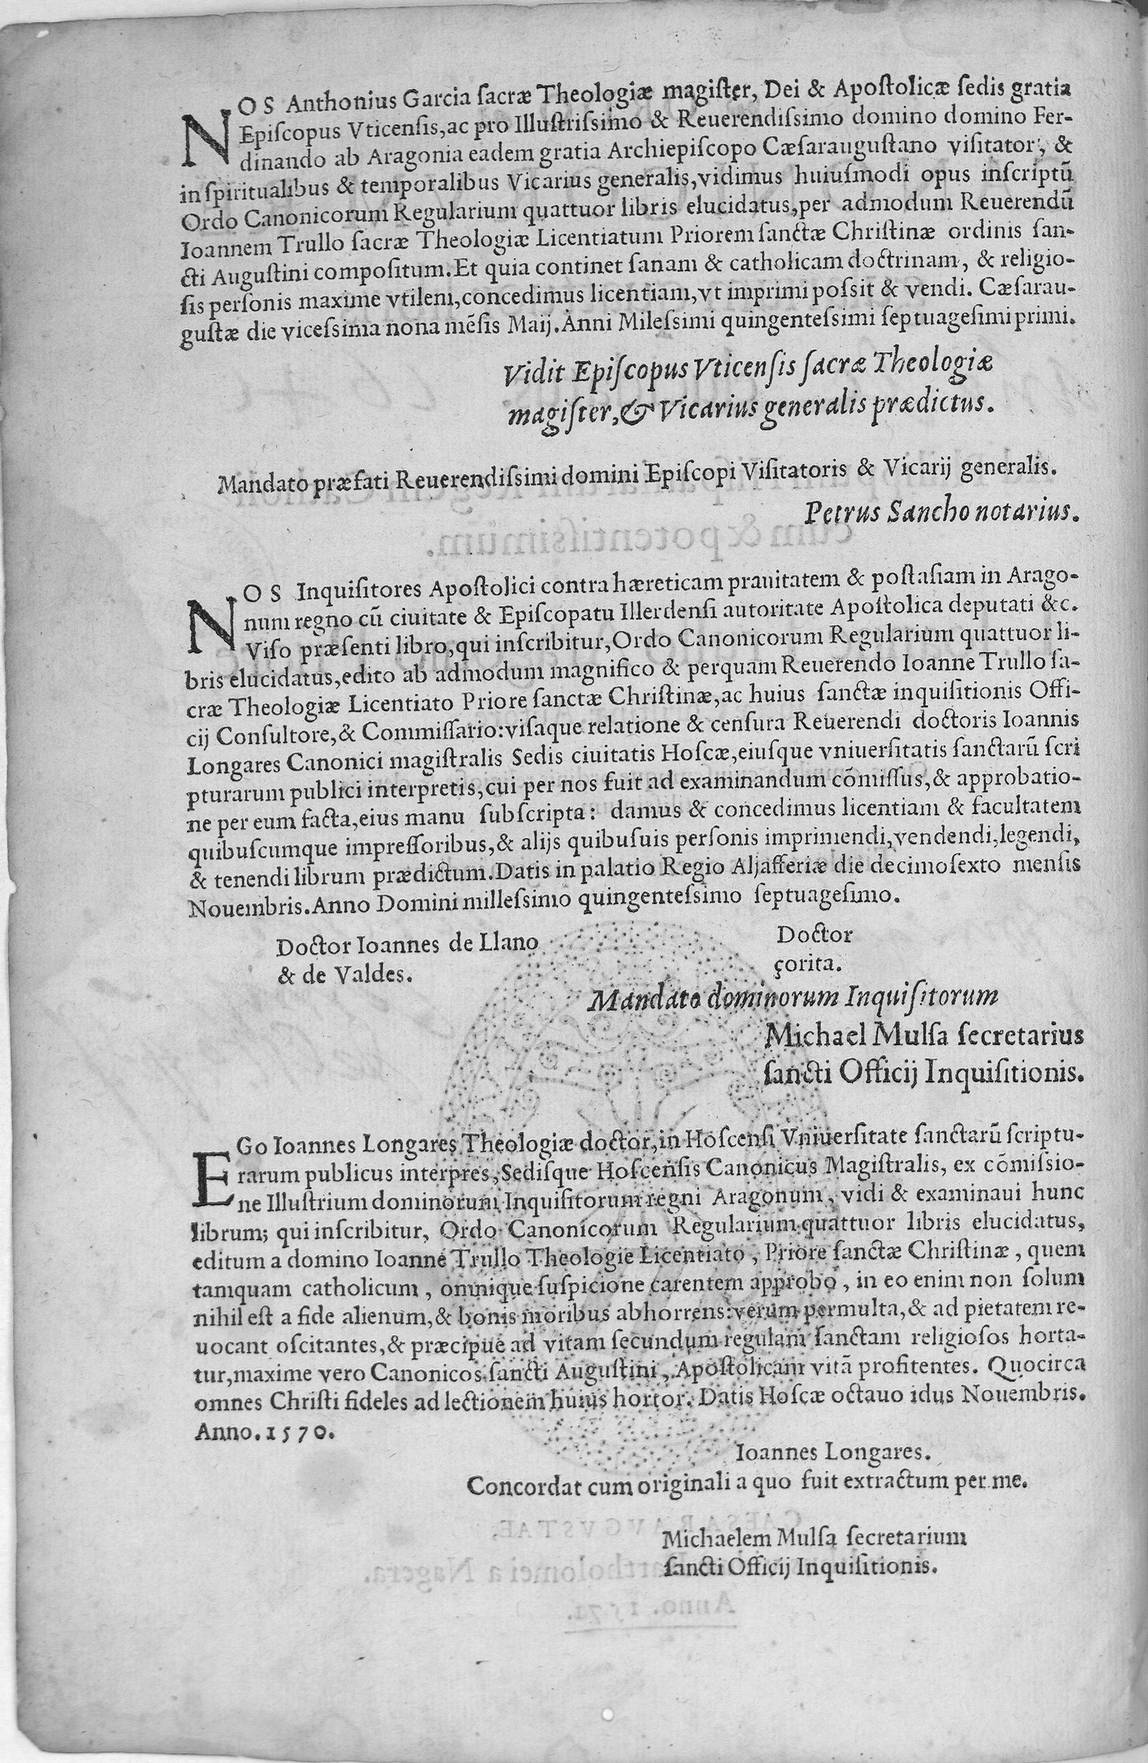 NOS Anthonius Garcia sacræ Theologiæ magister, Dei & Apostolicæ sedis gratia
Episcopus Vticensis, ac pro Illustrissimo & Reuerendissimo domino domino Fer-
dinando ab Aragonia eadem gratia Archiepiscopo Cæsaraugustano visitator, &
in spiritualibus & temporalibus Vicarius generalis, vidimus huiusmodi opus inscriptũ
Ordo Canonicorum Regularium quattuor libris elucidatus, per admodum Reuerendũ
Ioannem Trullo sacræ Theologiæ Licentiatum Priorem sanctæ Christinæ ordinis san-
cti Augustini compositum. Et quia continet sanam & catholicam doctrinam, & religio-
sis personis maxime vtilem, concedimus licentiam, vt imprimi possit & vendi. Cæsarau-
gustæ die vicessima nona mẽsis Maij. Anni Milessimi quingentessimi septuagesimi primi.
Vidit Episcopus Vticensis sacræ Theologiæ
magister, & Vicarius generalis prædictus.
Mandato præfati Reuerendissimi domini Episcopi Visitatoris & Vicarij generalis.
Petrus Sancho notarius.
NOS Inquisitores Apostolici contra hæreticam prauitatem & postasiam in Arago-
num regno cũ ciuitate & Episcopatu Illerdensi autoritate Apostolica deputati &c.
Viso præsenti libro, qui inscribitur, Ordo Canonicorum Regularium quattuor li-
bris elucidatus, edito ab admodum magnifico & perquam Reuerendo Ioanne Trullo sa-
cræ Theologiæ Licentiato Priore sanctæ Christinæ, ac huius sanctæ inquisitionis Offi-
cij Consultore, & Commissario: visaque relatione & censura Reuerendi doctoris Ioannis
Longares Canonici magistralis Sedis ciuitatis Hoscæ, eiusque vniuersitatis sanctarũ scri
pturarum publici interpretis, cui per nos fuit ad examinandum cõmissus, & approbatio-
ne per eum facta, eius manu subscripta: damus & concedimus licentiam & facultatem
quibuscumque impressoribus, & alijs quibusuis personis imprimendi, vendendi, legendi,
& tenendi librum prædictum. Datis in palatio Regio Aljafferiæ die decimosexto mensis
Nouembris. Anno Domini millessimo quingentessimo septuagesimo.
Doctor Ioannes de Llano Doctor
& de Valdes. çorita.
Mandato dominorum Inquisitorum
Michael Mulsa secretarius
sancti Officij Inquisitionis.
EGo Ioannes Longares Theologiæ doctor, in Hoscensi Vniuersitate sanctarũ scriptu-
rarum publicus interpres, Sedisque Hoscensis Canonicus Magistralis, ex cõmissio-
ne Illustrium dominorum Inquisitorum regni Aragonum, vidi & examinaui hunc
librum; qui inscribitur, Ordo Canonicorum Regularium quattuor libris elucidatus,
editum a domino Ioanne Trullo Theologie Licentiato, Priore sanctæ Christinæ, quem
tamquam catholicum, omnique suspicione carentem approbo, in eo enim non solum
nihil est a fide alienum, & bonis moribus abhorrens: verum permulta, & ad pietatem re-
uocant oscitantes, & præcipue ad vitam secundum regulam sanctam religiosos horta-
tur, maxime vero Canonicos sancti Augustini, Apostolicam vitã profitentes. Quocirca
omnes Christi fideles ad lectionem huius hortor. Datis Hoscæ octauo idus Nouembris.
Anno. 1570.
Ioannes Longares.
Concordat cum originali a quo fuit extractum per me.
Michaelem Mulsa secretarium
sancti Officij Inquisitionis.